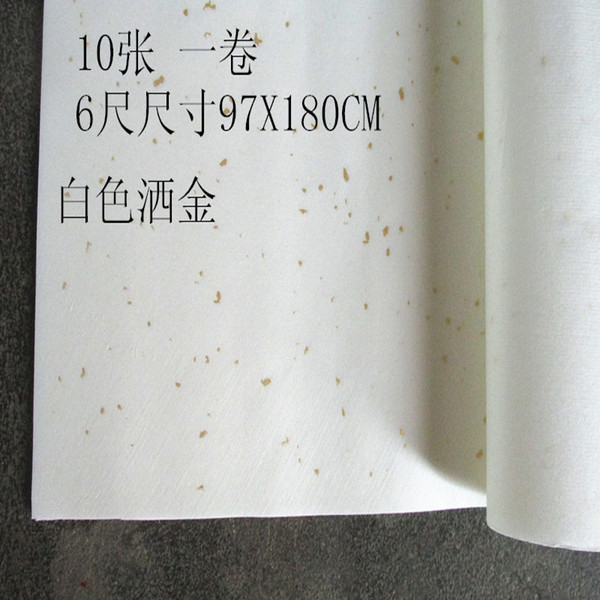 10张 一卷
6尺尺寸97X180CM
白色洒金